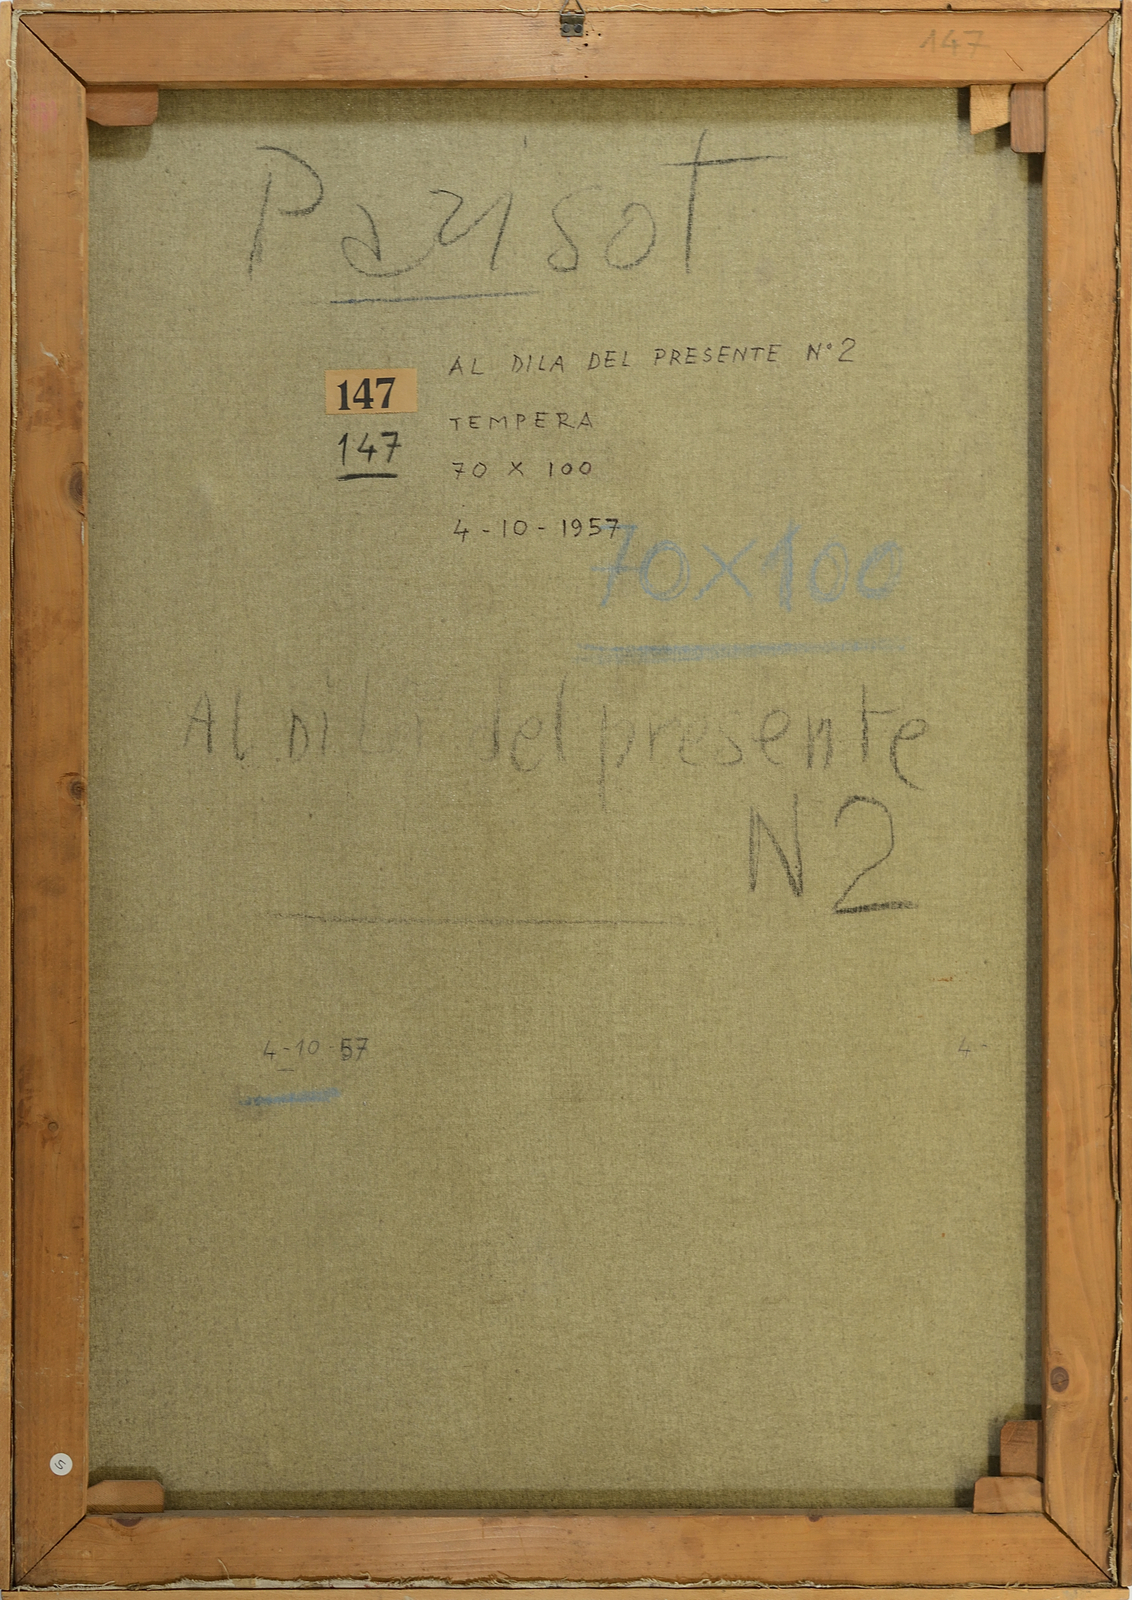 147
Parisot
AL DILA DEL PRESENTE N° 2
147
TEMPERA
147
70 X 100
4 - 10 - 1957
70X100
Al DiLà del presente
N 2
4-10-57
4-
S